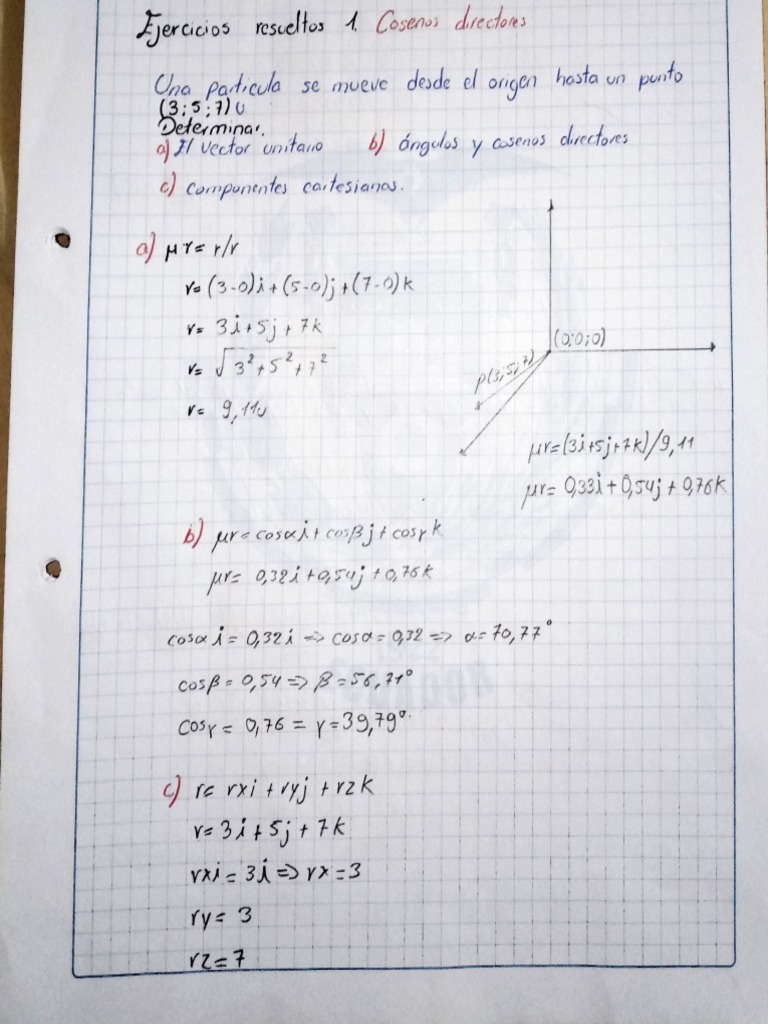 Ejercicios resueltos 1. Cosenos directores
Una particula se mueve desde el origen hasta un punto
(3;5;7)u
Determinar.
a) El vector unitario b) ángulos y cosenos directores
c) componentes cartesianas.
a) μr = r/r
r= (3-0)i+(5-0)j+(7-0)k
r= 3i+5j+7k
r= √3²+5²+7²
r= 9,11u
(0;0;0)
p(3;5;7)
μr=(3i+5j+7k)/9,11
μr= 0,33i+0,54j+0,76k
b) μr=cosαi+cosβj+cosγk
μr= 0,32i+0,54j+0,76k
cosαi=0,32i=>cosα=0,32=>α=70,77°
cosβ=0,54=>β=56,71°
cosγ=0,76=γ=39,79°.
c) r= rxi+ryj+rzk
r=3i+5j+7k
rxi=3i=>rx=3
ry=3
rz=7